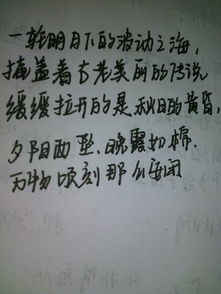 一轮明月下的波动之海，
掩盖着古老美丽的传说
缓缓拉开的是秋日的黄昏，
夕阳西坠、晚霞如棉，
万物顷刻那么安闲